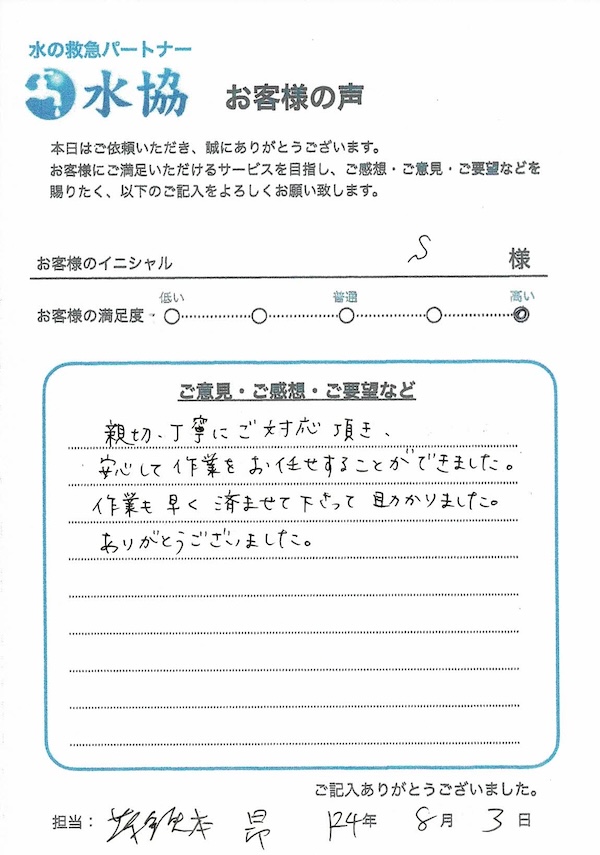 水の救急パートナー
水協 お客様の声
本日はご依頼いただき、誠にありがとうございます。
お客様にご満足いただけるサービスを目指し、ご感想・ご意見・ご要望などを
賜りたく、以下のご記入をよろしくお願い致します。
お客様のイニシャル S 様
低い 普通 高い
お客様の満足度
ご意見・ご感想・ご要望など
親切、丁寧にご対応頂き、
安心して作業をお任せすることができました。
作業も早く済ませて下さって助かりました。
ありがとうございました。
ご記入ありがとうございました。
担当: 昂 R4年 8月 3日